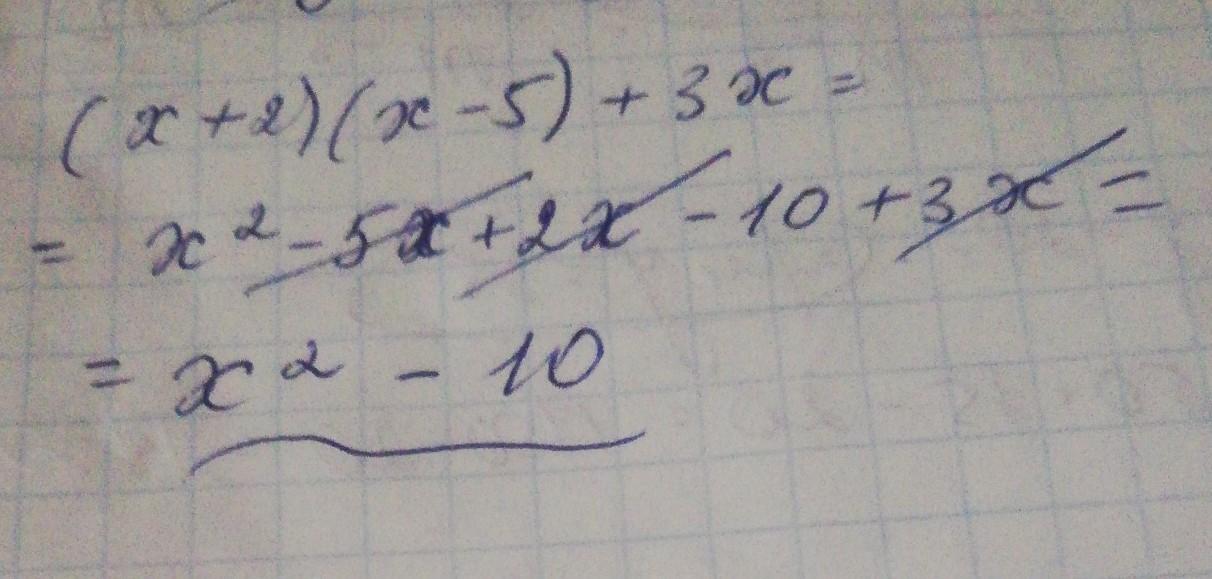 (x+2)(x-5)+3x=
= x²-5x+2x-10+3x=
= x²-10